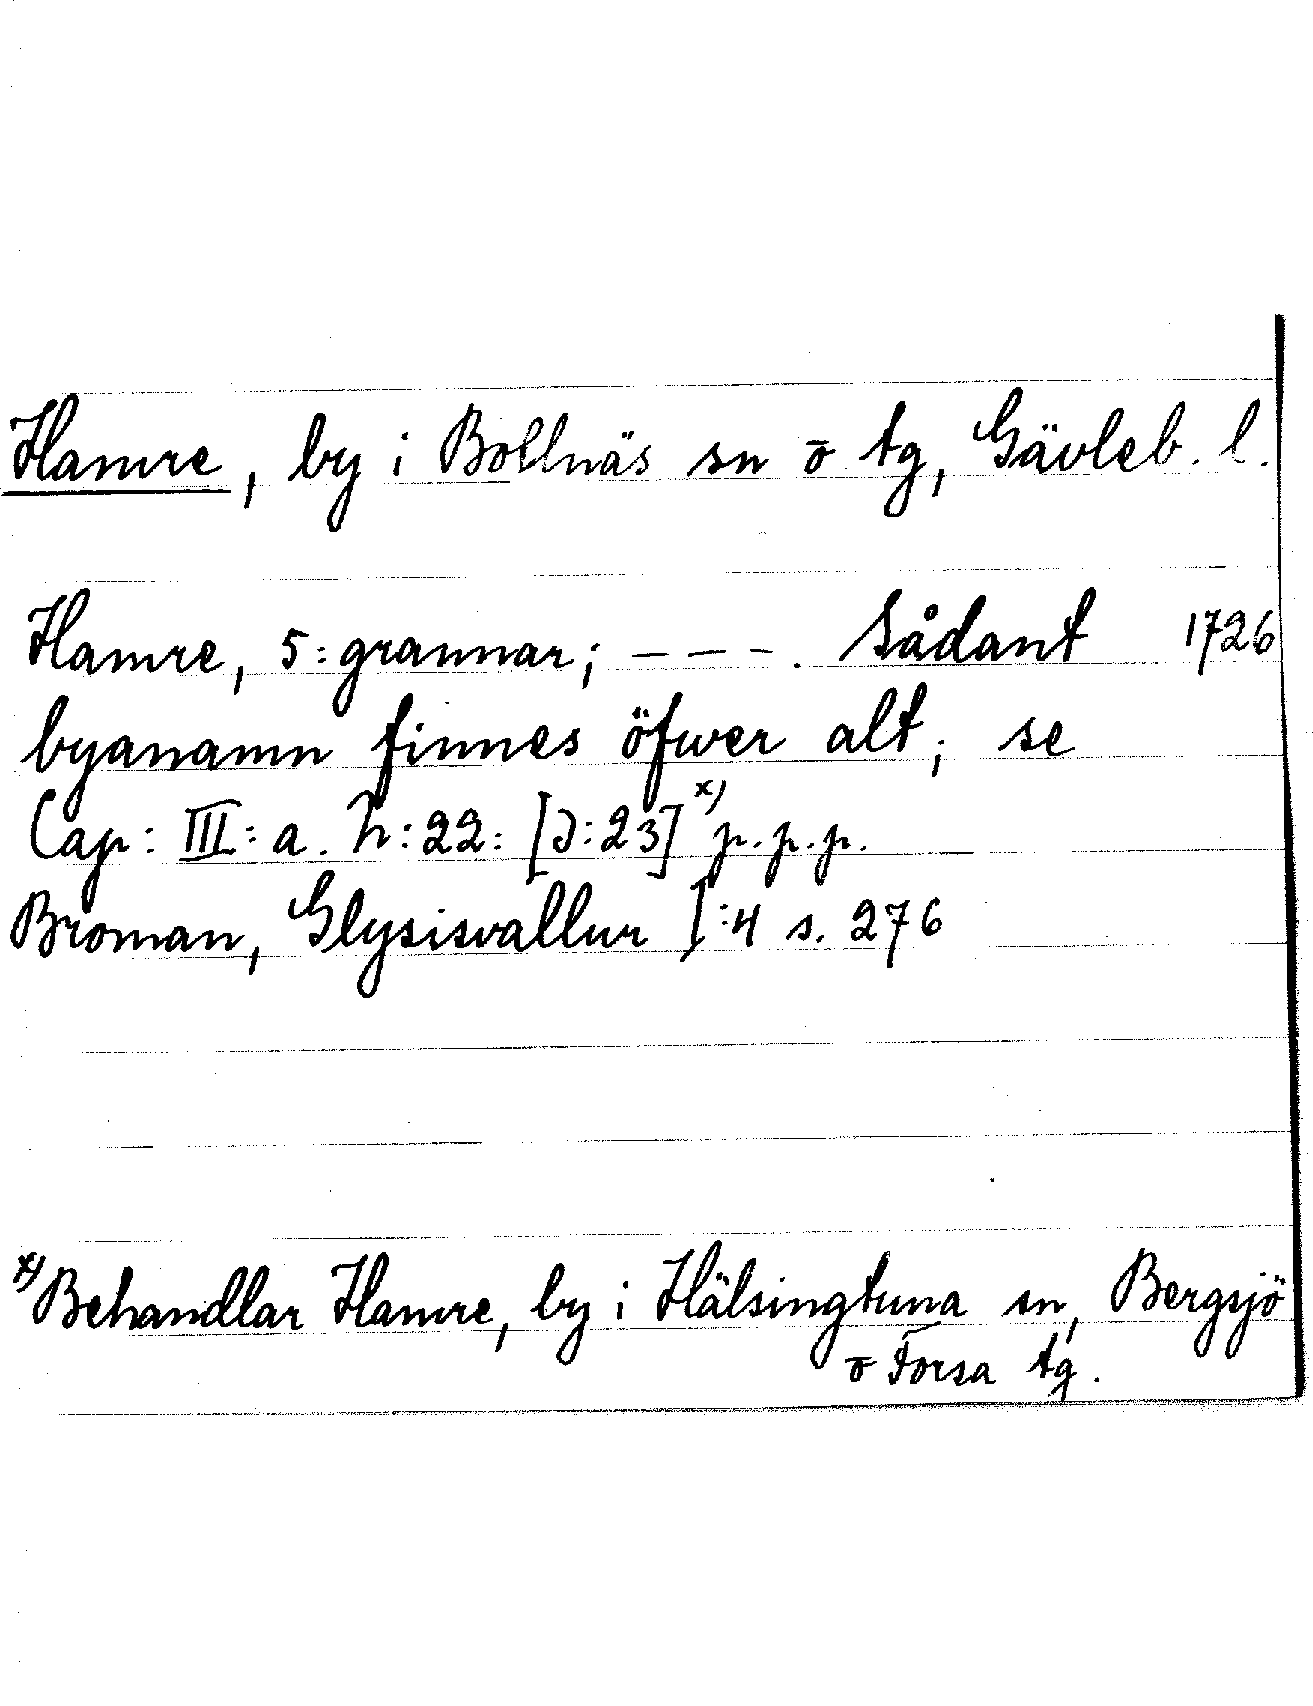 Hamre, by i Bollnäs sn ō tg, Gävleb. l.
Hamre, 5:grannar; – – – . Sådant 1726
byanamn finnes öfwer alt; se
Cap: III: a. h:22: [J:23] x) p.p.p.
Broman, Glysisvallur I:4 s. 276
x) Behandlar Hamre, by i Hälsingtuna sn, Bergsjö
ō Forsa tg.